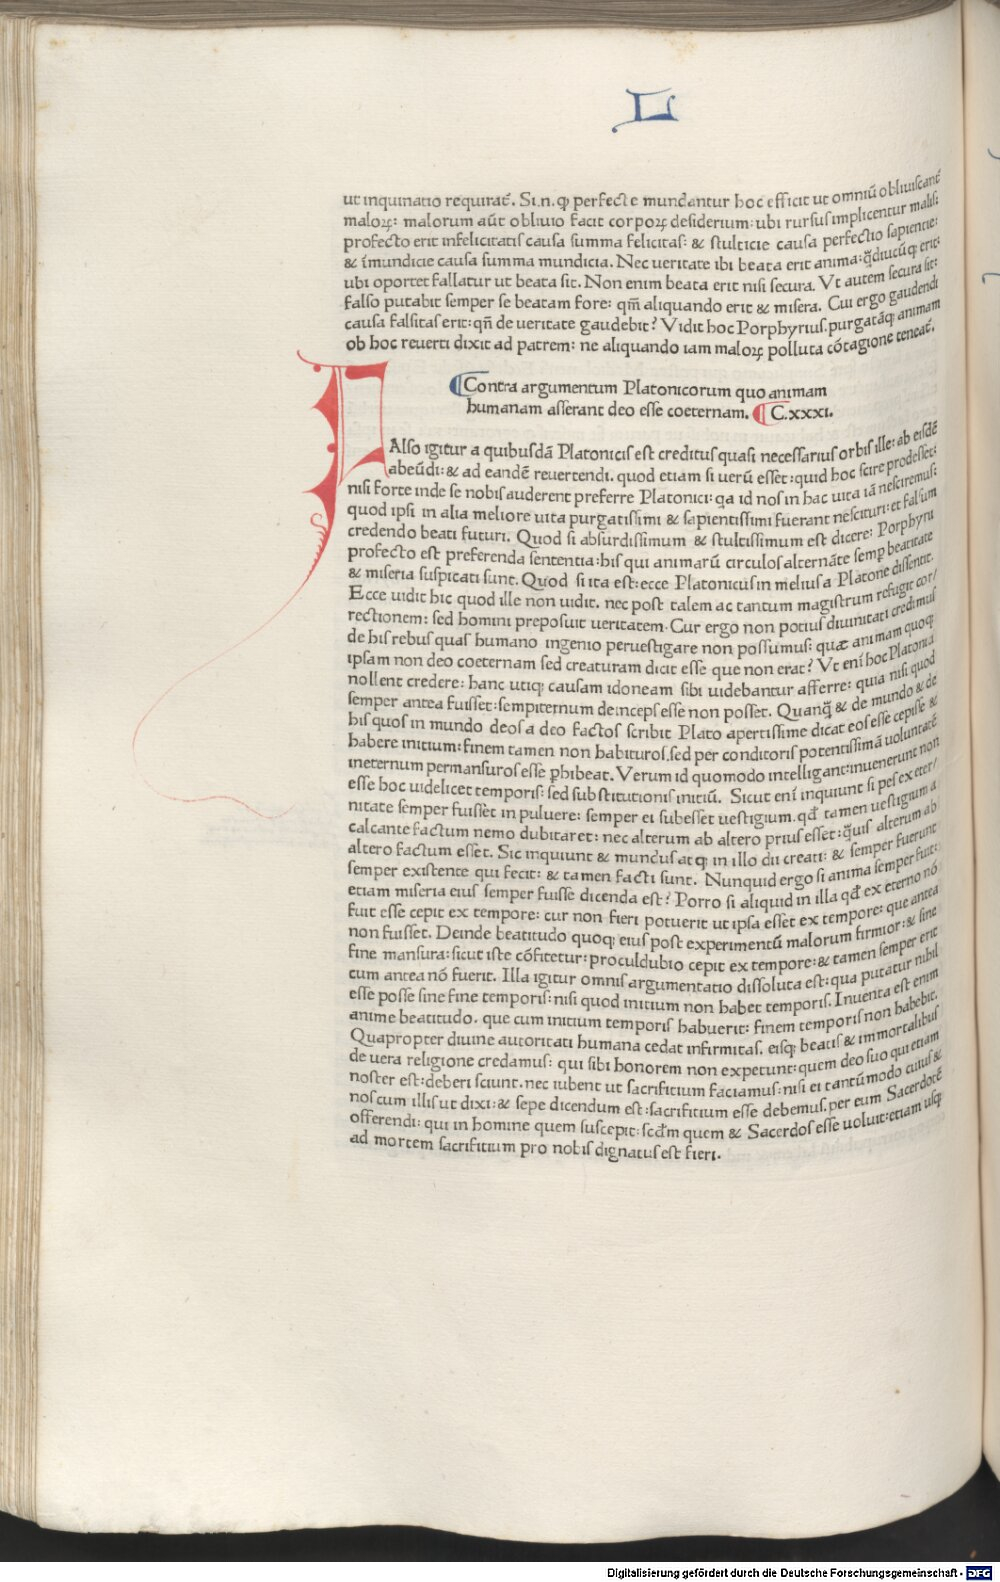 L
ut inquinatio requirat᷒. Si.n.ꝙ perfecte mundantur hoc efficit ut omniū obliuiscant᷒
maloꝝ: malorum aūt obliuio facit corpoꝝ desiderium: ubi rursus implicentur malis:
profecto erit infelicitatis causa summa felicitas: & stulticie causa perfectio sapientie:
& īmundicie causa summa mundicia. Nec ueritate ibi beata erit anima: q̄diucūq; erit:
ubi oportet fallatur ut beata sit. Non enim beata erit nisi secura. Vt autem secura sit:
falso putabit semper se beatam fore: qm̄ aliquando erit & misera. Cui ergo gaudendi
causa falsitas erit: qn̄ de ueritate gaudebit? Vidit hoc Porphyrius. purgatāq; animam
ob hoc reuerti dixit ad patrem: ne aliquando iam maloꝝ polluta cōtagione teneat᷒.
Contra argumentum Platonicorum quo animam
humanam asserant deo esse coeternam. C.xxxi.
FAlso igitur a quibusdā Platonicis est creditus quasi necessarius orbis ille: ab eisdē
abeūdi: & ad eandē reuertendi. quod etiam si uerū esset: quid hoc scire prodesset:
nisi forte inde se nobis auderent preferre Platonici: qa id nos in hac uita iā nesciremus:
quod ipsi in alia meliore uita purgatissimi & sapientissimi fuerant nescituri: et falsum
credendo beati futuri. Quod si absurdissimum & stultissimum est dicere: Porphyrii
profecto est preferenda sententia: his qui animarū circulos alternāte semp̱ beatitate
& miseria suspicati sunt. Quod si ita est: ecce Platonicus in melius a Platone dissentit.
Ecce uidit hic quod ille non uidit. nec post talem ac tantum magistrum refugit cor/
rectionem: sed homini preposuit ueritatem. Cur ergo non potius diuinitati credimus
de his rebus quas humano ingenio peruestigare non possumus: quæ animam quoq;
ipsam non deo coeternam sed creaturam dicit esse que non erat? Vt enī hoc Platonici
nollent credere: hanc utiq; causam idoneam sibi uidebantur afferre: quia nisi quod
semper antea fuisset: sempiternum deinceps esse non posset. Quanq̄ & de mundo & de
his quos in mundo deos a deo factos scribit Plato apertissime dicat eos esse cepisse &
habere initium: finem tamen non habituros. sed per conditoris potentissimā uoluntatē
ineternum permansuros esse p̱hibeat. Verum id quomodo intelligant: inuenerunt non
esse hoc uidelicet temporis: sed substitutionis initiū. Sicut enī inquiunt si pes ex eter/
nitate semper fuisset in puluere: semper ei subesset uestigium. qđ tamen uestigium a
calcante factum nemo dubitaret: nec alterum ab altero prius esset: q̄uis alterum ab
altero factum esset. Sic inquiunt & mundus atq; in illo dii creati: & semper fuerunt
semper existente qui fecit: & tamen facti sunt. Nunquid ergo si anima semper fuit:
etiam miseria eius semper fuisse dicenda est? Porro si aliquid in illa qđ ex eterno nō
fuit esse cepit ex tempore: cur non fieri potuerit ut ipsa esset ex tempore: que antea
non fuisset. Deinde beatitudo quoq; eius post experimentū malorum firmior: & sine
fine mansura: sicut iste cōfitetur: proculdubio cepit ex tempore: & tamen semper erit
cum antea nō fuerit. Illa igitur omnis argumentatio dissoluta est: qua putatur nihil
esse posse sine fine temporis: nisi quod initium non habet temporis. Inuenta est enim
anime beatitudo. que cum initium temporis habuerit: finem temporis non habebit.
Quapropter diuine autoritati humana cedat infirmitas. eisq; beatis & immortalibus
de uera religione credamus: qui sibi honorem non expetunt: quem deo suo qui etiam
noster est: deberi sciunt. nec iubent ut sacrifitium faciamus: nisi ei tantūmodo cuius &
nos cum illis ut dixi: & sepe dicendum est: sacrifitium esse debemus. per eum Sacerdotē
offerendi: qui in homine quem suscepit: scđm quem & Sacerdos esse uoluit: etiam usq;
ad mortem sacrifitium pro nobis dignatus est fieri.
Digitalisierung gefördert durch die Deutsche Forschungsgemeinschaft - DFG